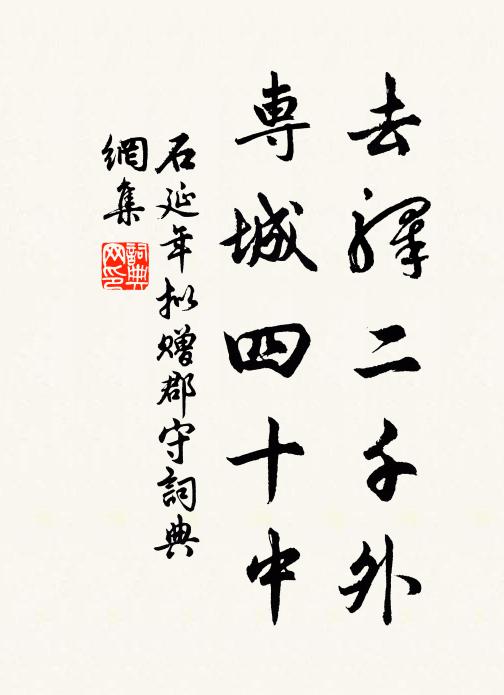 去驛二千外
専城四十中
石延年拟赠郡守詞典
網集
詞典
网印